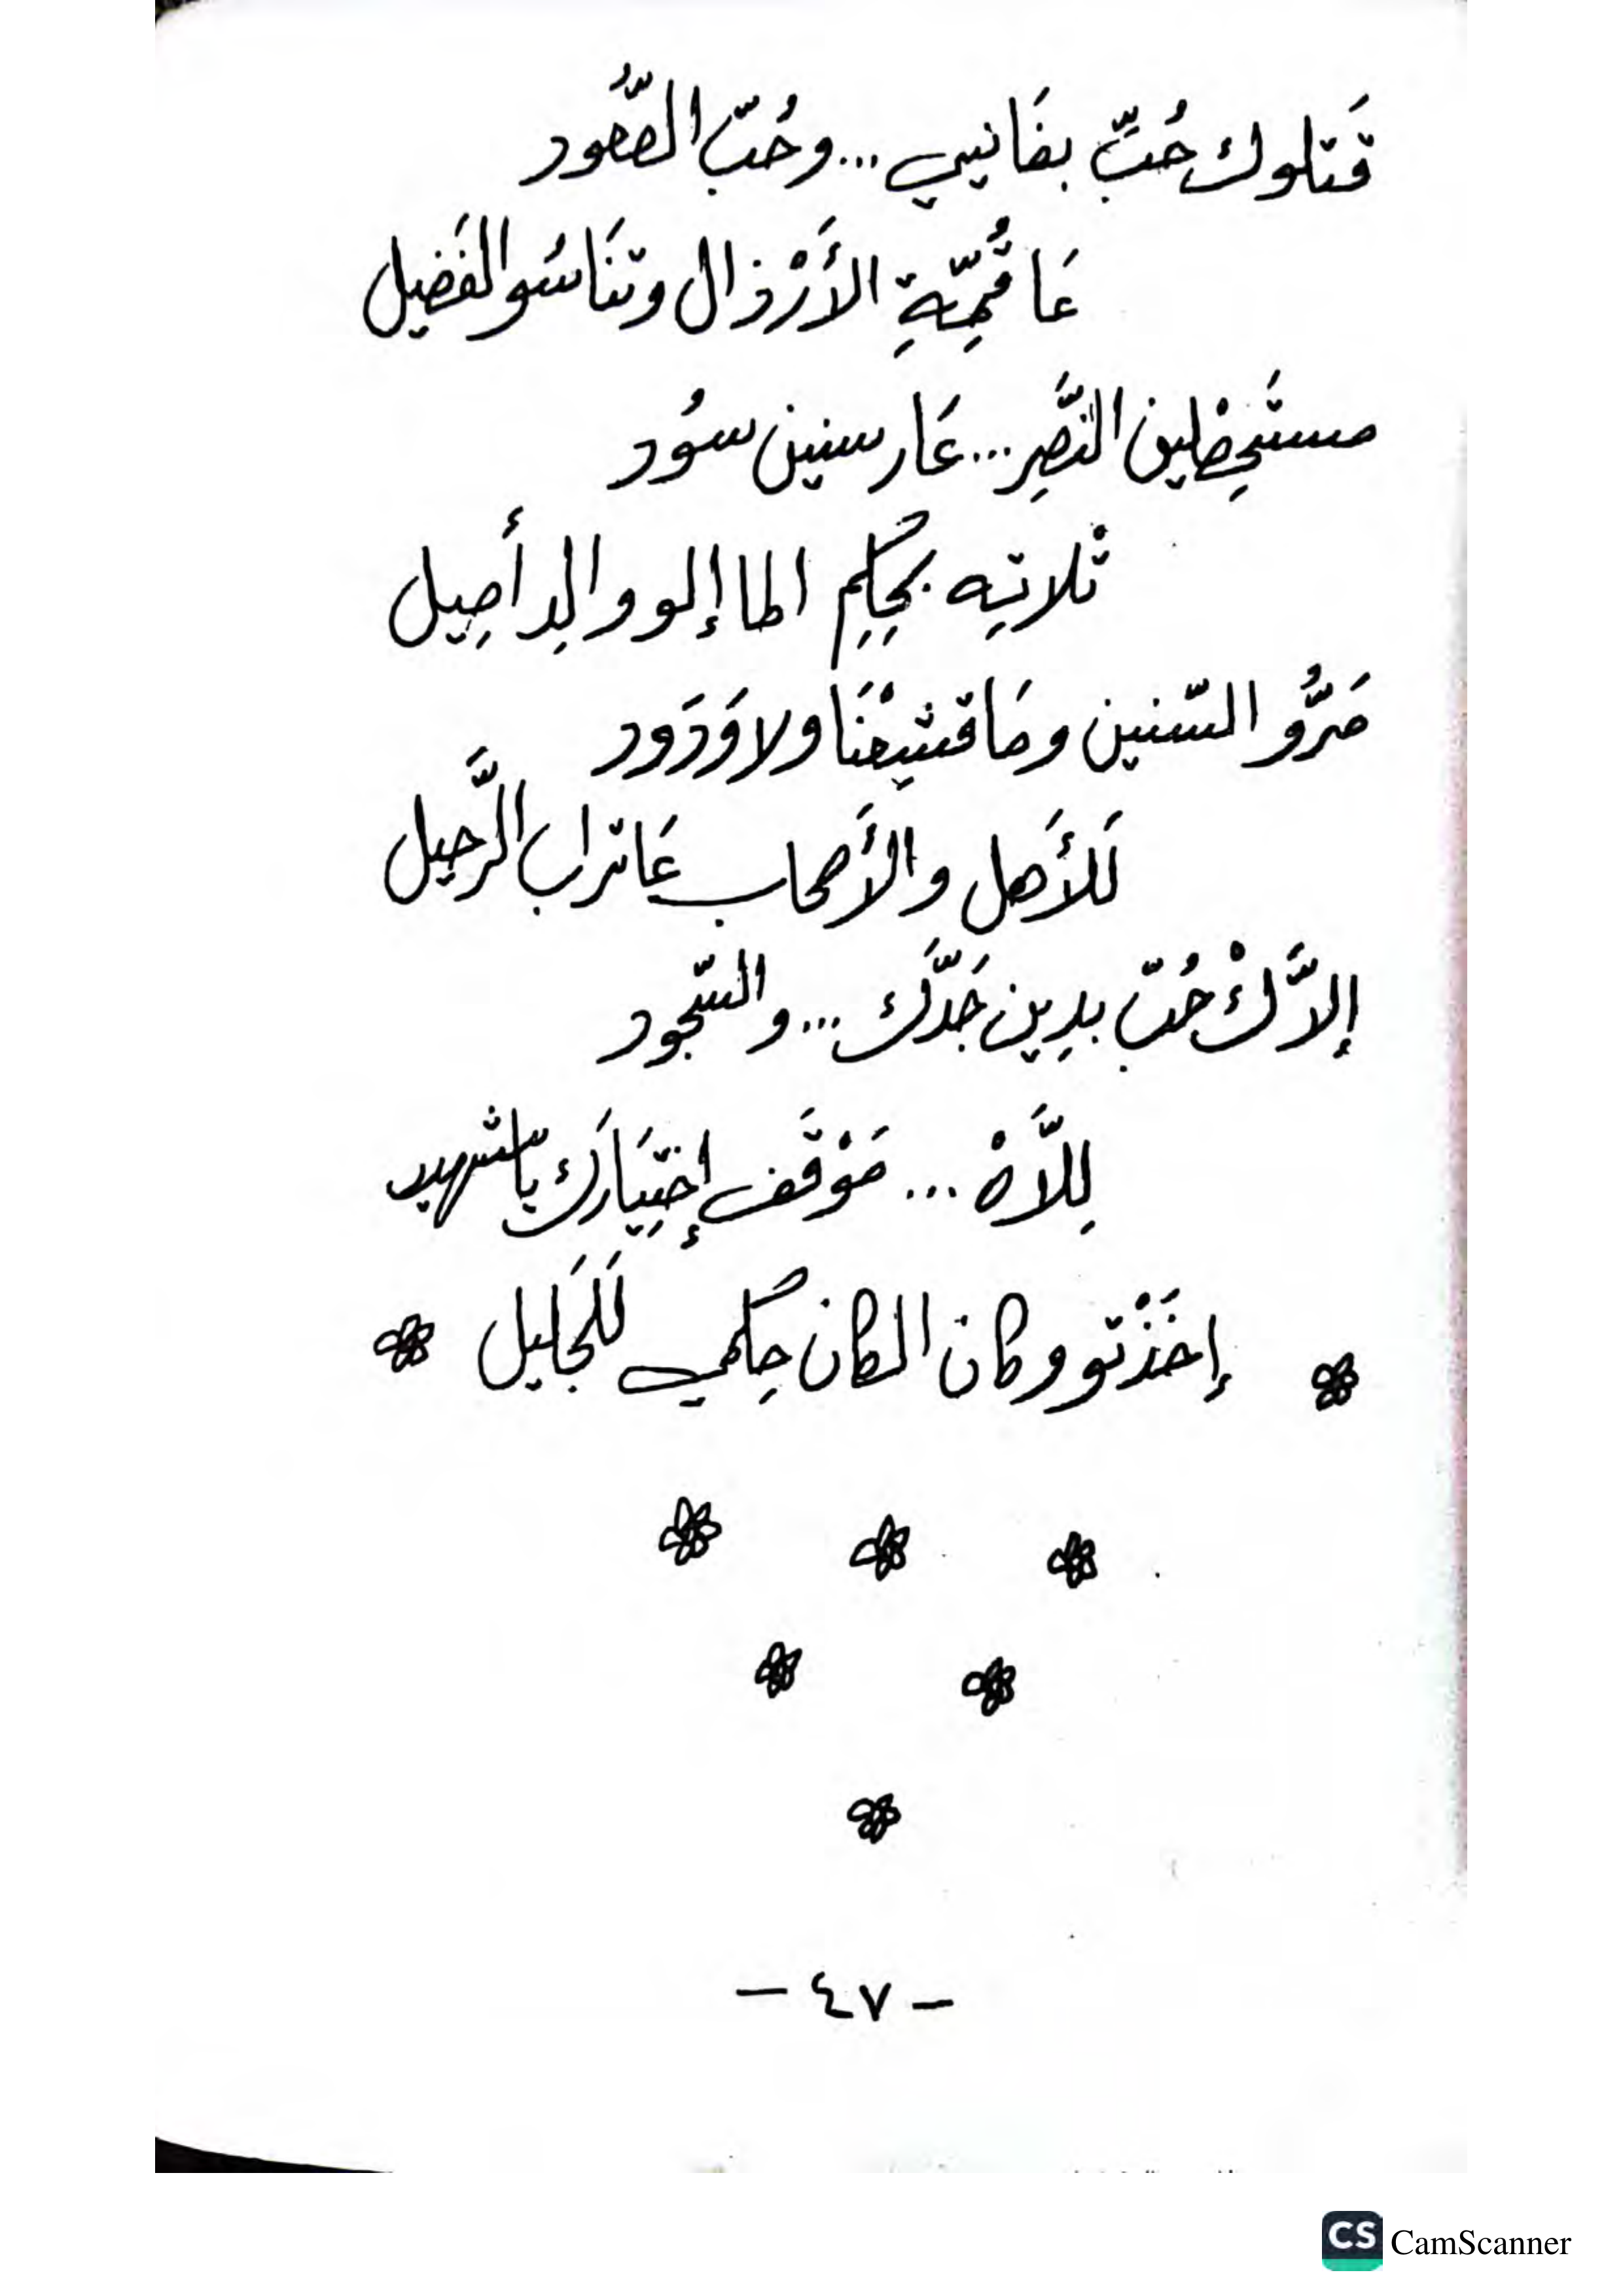 قَتلوك حُبّ بفَانيي ... وحُبّ الصُّعود
عَا قُمِّةِ الأَرْذال وتنَاسُو الفَضيل
مستَحِظْلين النَّصِر ... عَار سنين سوُد
ثلاتِه بحِكِم الما إلو والِد أصِيل
مَرُّو السّنين ومَا قشيعْنَا ولا وَدَود
لَلأَهل والأَصحاب عَا تراب الرَّحيل
إلاَّكْ حُبّ بدِين جَدَّك ... والسّجود
لِلاَّهْ ... مَوْقَف إختِيَارَك يا شهيد
إخَذْتو وكان المكان حِكمي لَلجَليل
- ٤٧ -
CS CamScanner